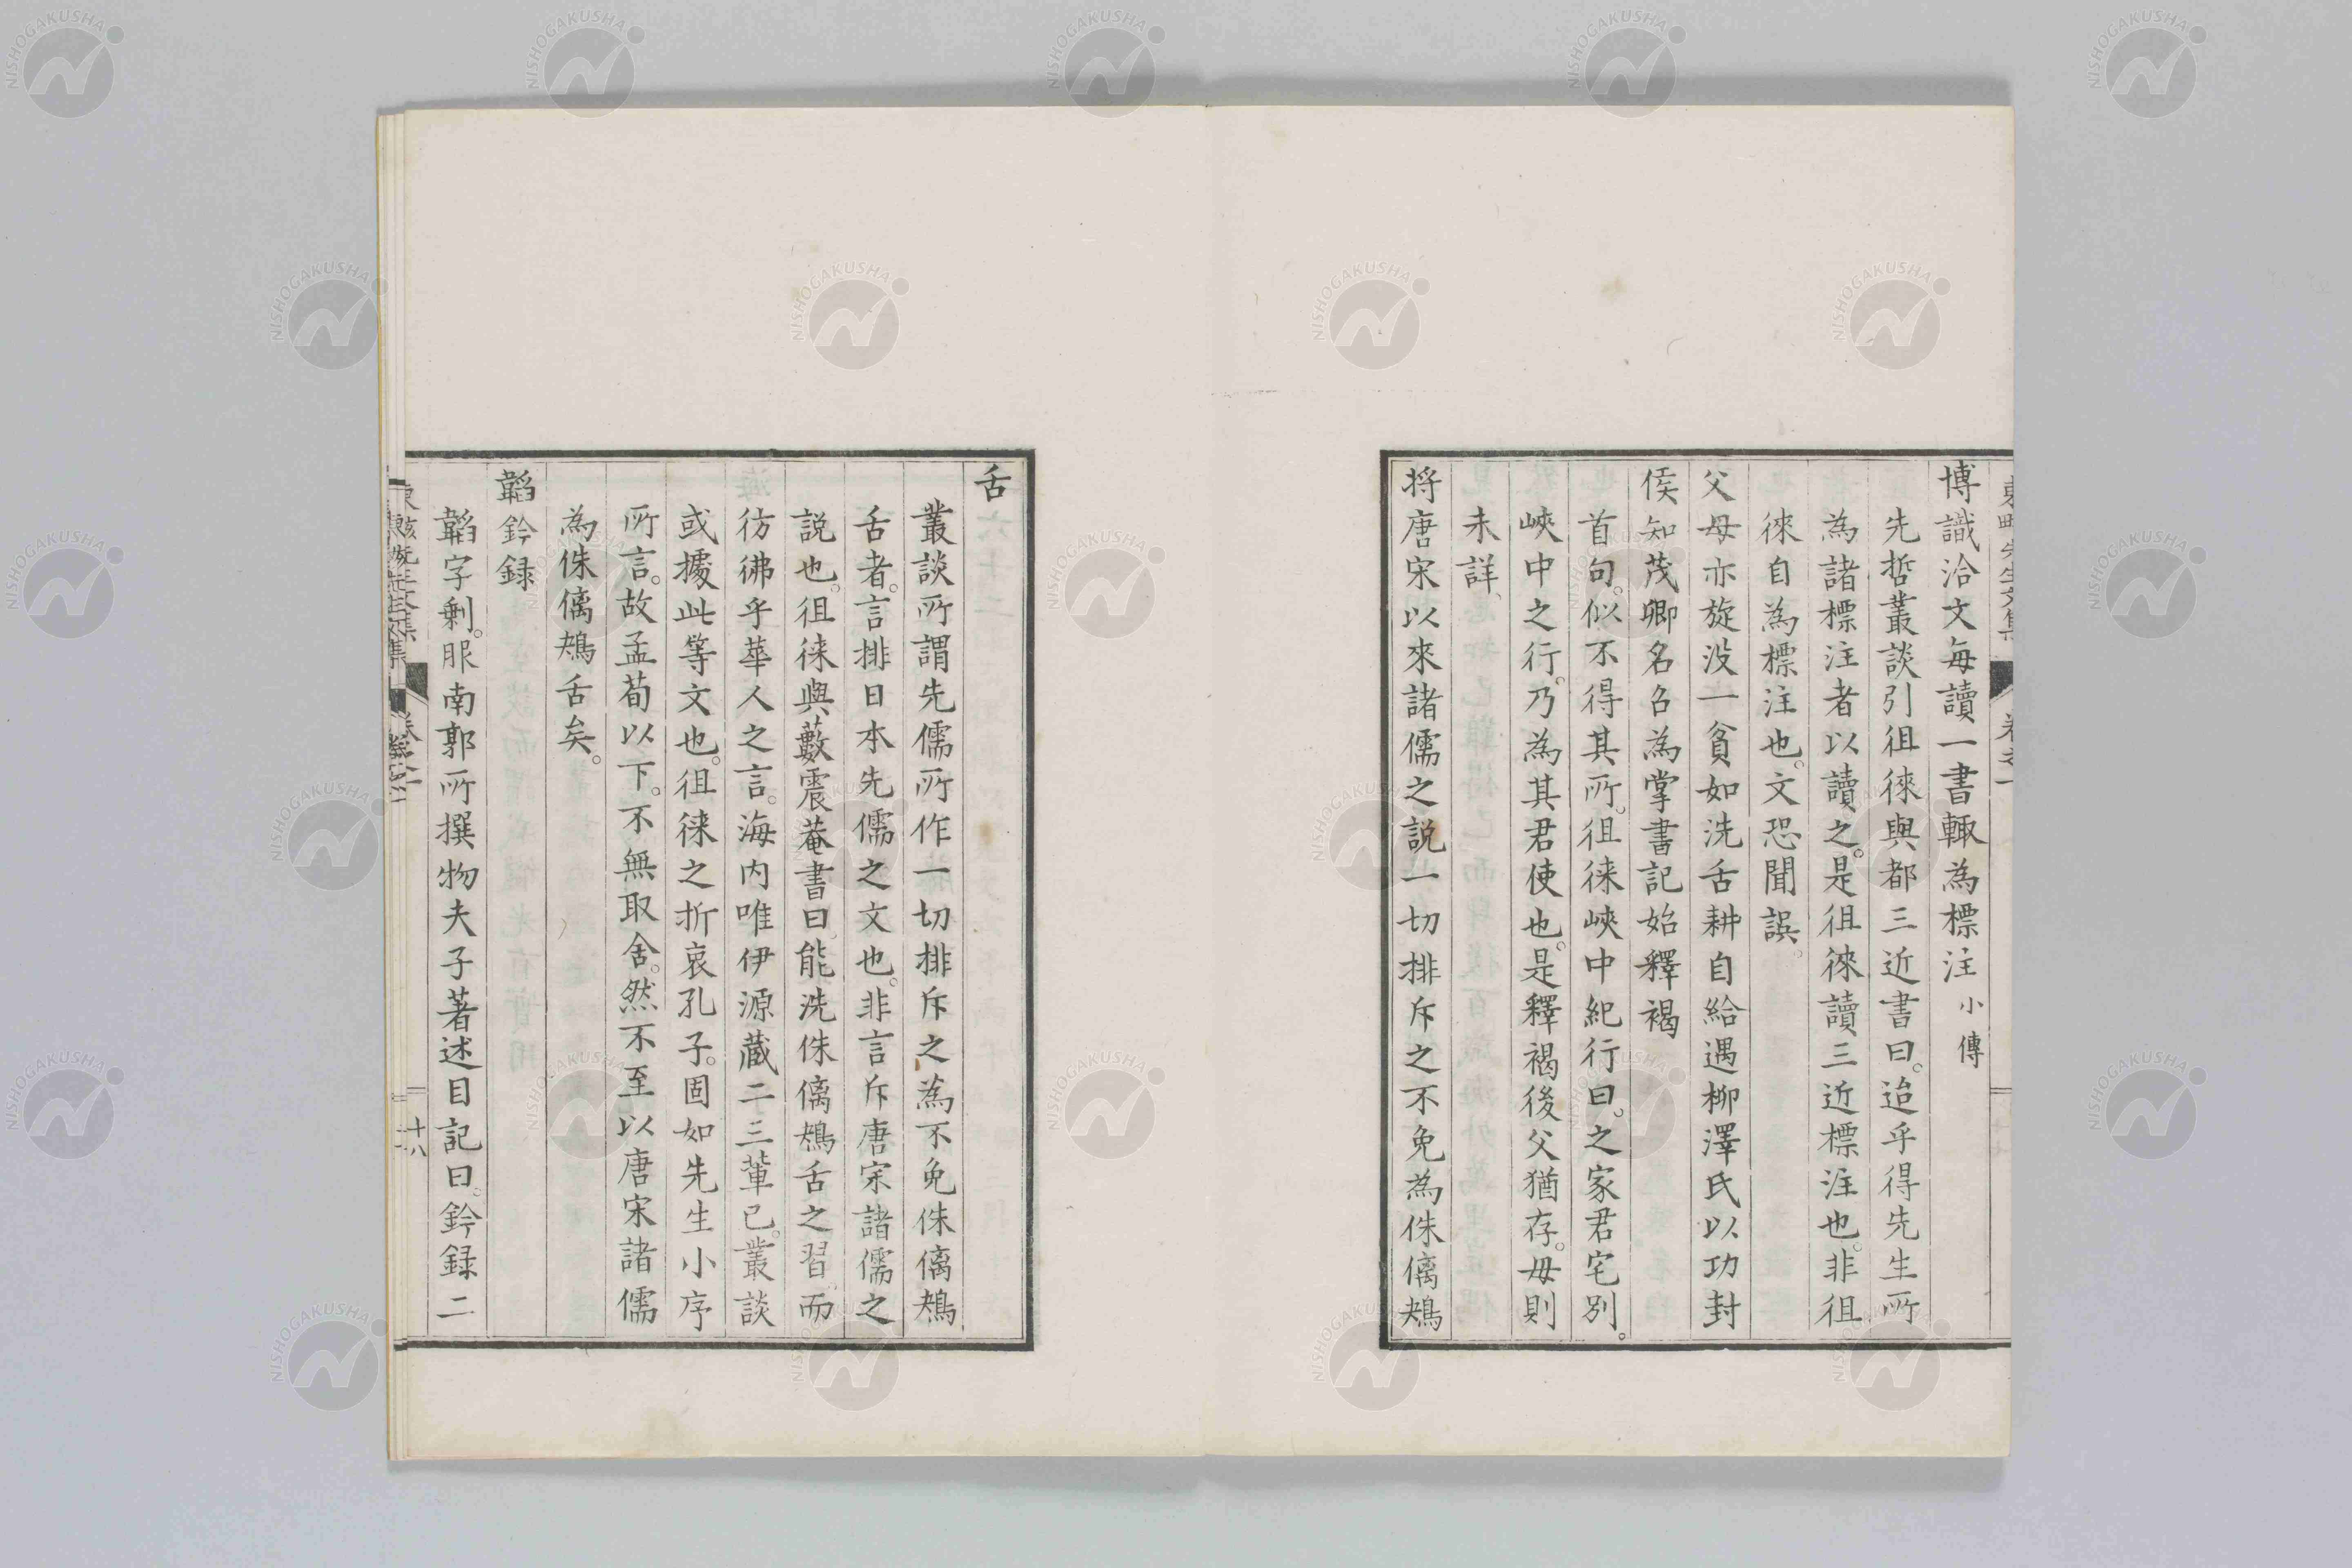 博識洽文每讀一書輙為標注 小傳
先哲叢談引徂徠與都三近書曰。迨乎得先生所
為諸標注者以讀之。是徂徠讀三近標注也。非徂
徠自為標注也。文恐聞誤。
父母亦旋没一貧如洗舌耕自給遇柳澤氏以功封
侯知茂卿名召為掌書記始釋褐
首句。似不得其所。徂徠峽中紀行曰。之家君宅別。
峽中之行。乃為其君使也。是釋褐後父猶存。毋則
未詳、
将唐宋以來諸儒之説一切排斥之不免為侏𠌯鴂
舌
叢談所謂先儒所作一切排斥之為不免侏𠌯鴂
舌者。言排日本先儒之文也。非言斥唐宋諸儒之
説也。徂徠與藪震菴書曰、能洗侏𠌯鴂舌之習。而
彷彿乎華人之言。海内唯伊源蔵二三軰已。叢談
或據此等文也。徂徠之折衷孔子。固如先生小序
所言。故孟荀以下。不無取舍。然不至以唐宋諸儒
為侏𠌯鴂舌矣。
韜鈐録
韜字剰。服南郭所撰物夫子著述目記曰。鈐録二
卷之一
十八
NISHOGAKUSHA